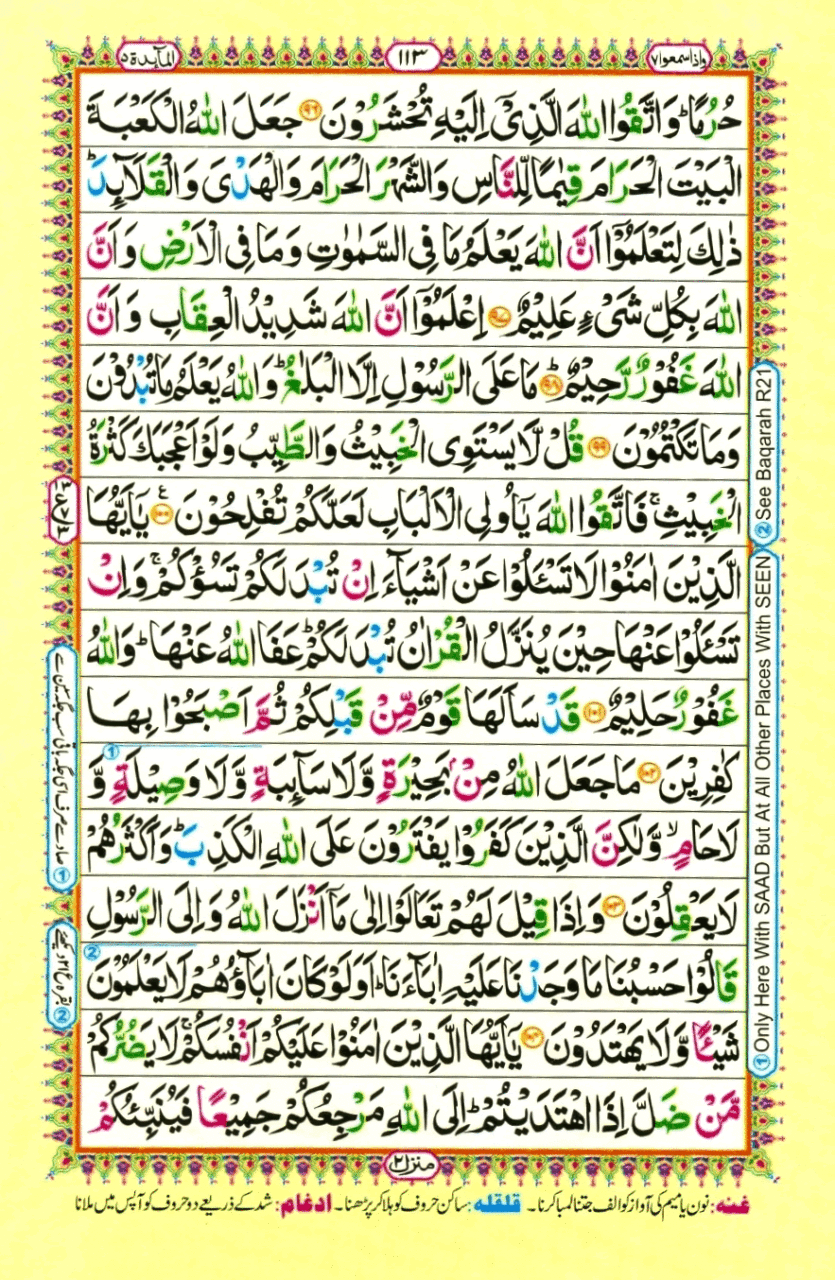 المآىدة ٥
١١٣
واذاسمعوا ٧
حُرُمًا ؕ وَاتَّقُوا اللّٰهَ الَّذِىْۤ اِلَيْهِ تُحْشَرُوْنَ ۝۹۶ جَعَلَ اللّٰهُ الْكَعْبَةَ
الْبَيْتَ الْحَرَامَ قِيٰمًا لِّلنَّاسِ وَالشَّهْرَ الْحَرَامَ وَالْهَدْىَ وَالْقَلَآىِٕدَ ؕ
ذٰلِكَ لِتَعْلَمُوْۤا اَنَّ اللّٰهَ يَعْلَمُ مَا فِى السَّمٰوٰتِ وَمَا فِى الْاَرْضِ وَاَنَّ
اللّٰهَ بِكُلِّ شَىْءٍ عَلِيْمٌ ۝۹۷ اِعْلَمُوْۤا اَنَّ اللّٰهَ شَدِيْدُ الْعِقَابِ وَاَنَّ
اللّٰهَ غَفُوْرٌ رَّحِيْمٌ ؕ۝۹۸ مَا عَلَى الرَّسُوْلِ اِلَّا الْبَلٰغُ ؕ وَاللّٰهُ يَعْلَمُ مَا تُبْدُوْنَ
وَمَا تَكْتُمُوْنَ ۝۹۹ قُلْ لَّا يَسْتَوِى الْخَبِيْثُ وَالطَّيِّبُ وَلَوْ اَعْجَبَكَ كَثْرَةُ
الْخَبِيْثِ ۚ فَاتَّقُوا اللّٰهَ يٰۤاُولِى الْاَلْبَابِ لَعَلَّكُمْ تُفْلِحُوْنَ ۝۱۰۰ يٰۤاَيُّهَا
الَّذِيْنَ اٰمَنُوْا لَا تَسْـَٔلُوْا عَنْ اَشْيَآءَ اِنْ تُبْدَ لَكُمْ تَسُؤْكُمْ ۚ وَاِنْ
تَسْـَٔلُوْا عَنْهَا حِيْنَ يُنَزَّلُ الْقُرْاٰنُ تُبْدَ لَكُمْ ؕ عَفَا اللّٰهُ عَنْهَا ؕ وَاللّٰهُ
غَفُوْرٌ حَلِيْمٌ ۝۱۰۱ قَدْ سَاَلَهَا قَوْمٌ مِّنْ قَبْلِكُمْ ثُمَّ اَصْبَحُوْا بِهَا
كٰفِرِيْنَ ۝۱۰۲ مَا جَعَلَ اللّٰهُ مِنْۢ بَحِيْرَةٍ وَّلَا سَآىِٕبَةٍ وَّلَا وَصِيْلَةٍ وَّ
لَا حَامٍ ۙ وَّلٰكِنَّ الَّذِيْنَ كَفَرُوْا يَفْتَرُوْنَ عَلَى اللّٰهِ الْكَذِبَ ؕ وَاَكْثَرُهُمْ
لَا يَعْقِلُوْنَ ۝۱۰۳ وَاِذَا قِيْلَ لَهُمْ تَعَالَوْا اِلٰى مَاۤ اَنْزَلَ اللّٰهُ وَاِلَى الرَّسُوْلِ
قَالُوْا حَسْبُنَا مَا وَجَدْنَا عَلَيْهِ اٰبَآءَنَا ؕ اَوَلَوْ كَانَ اٰبَآؤُهُمْ لَا يَعْلَمُوْنَ
شَيْـًٔا وَّلَا يَهْتَدُوْنَ ۝۱۰۴ يٰۤاَيُّهَا الَّذِيْنَ اٰمَنُوْا عَلَيْكُمْ اَنْفُسَكُمْ ۚ لَا يَضُرُّكُمْ
مَّنْ ضَلَّ اِذَا اهْتَدَيْتُمْ ؕ اِلَى اللّٰهِ مَرْجِعُكُمْ جَمِيْعًا فَيُنَبِّئُكُمْ
② See Baqarah R21
① Only Here With SAAD But At All Other Places With SEEN
منزل ٢
غنه: نون یا میم کی آواز کو الف جتنا لمبا کرنا۔ قلقله: ساکن حروف کو ہلا کر پڑھنا۔ ادغام: شد کے ذریعے دو حروف کو آپس میں ملانا